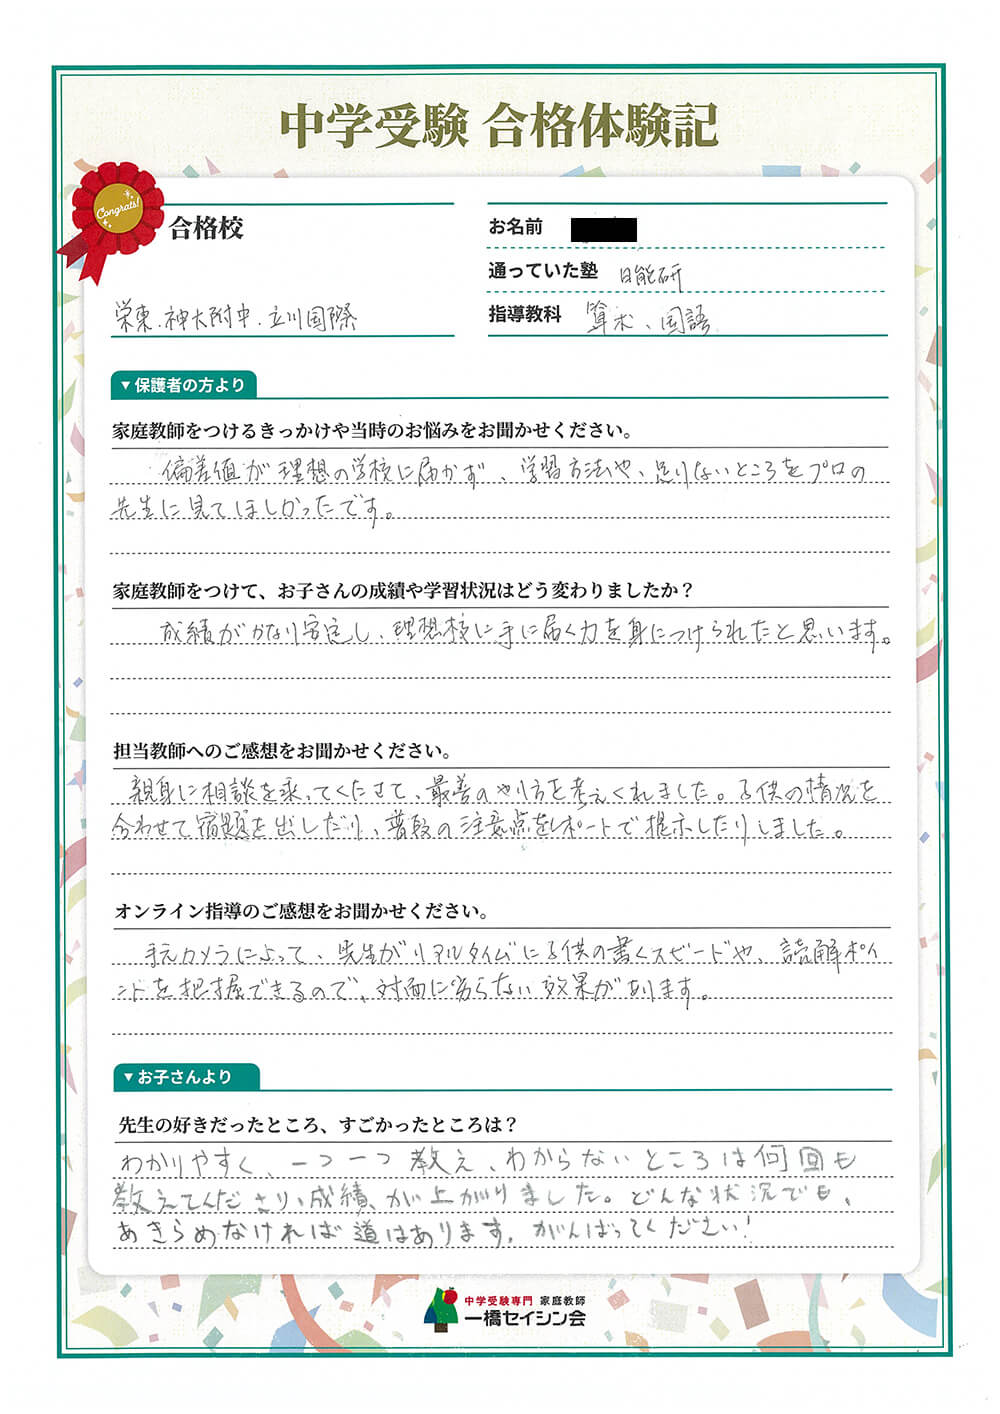 中学受験 合格体験記
Congrats!
合格校
栄東.神大附中.立川国際
お名前
通っていた塾 日能研
指導教科 算数、国語
▼保護者の方より
家庭教師をつけるきっかけや当時のお悩みをお聞かせください。
偏差値が理想の学校に届かず、学習方法や、足りないところをプロの
先生に見てほしかったです。
家庭教師をつけて、お子さんの成績や学習状況はどう変わりましたか？
成績がかなり安定し、理想校に手に届く力を身につけられたと思います。
担当教師へのご感想をお聞かせください。
親身に相談を乗ってくださて、最善のやり方を考えくれました。子供の情況を
合わせて宿題を出しだり、普段の注意点をレポートで提示したりしました。
オンライン指導のご感想をお聞かせください。
手元カメラによって、先生がリアルタイムに子供の書くスピードや、読解ポイ
ントを把握できるので、対面に劣らない効果があります。
▼お子さんより
先生の好きだったところ、すごかったところは？
わかりやすく、一つ一つ教え、わからないところは何回も
教えてくださり、成績が上がりました。どんな状況でも、
あきらめなければ道はあります。がんばってください！
中学受験専門 家庭教師
一橋セイシン会